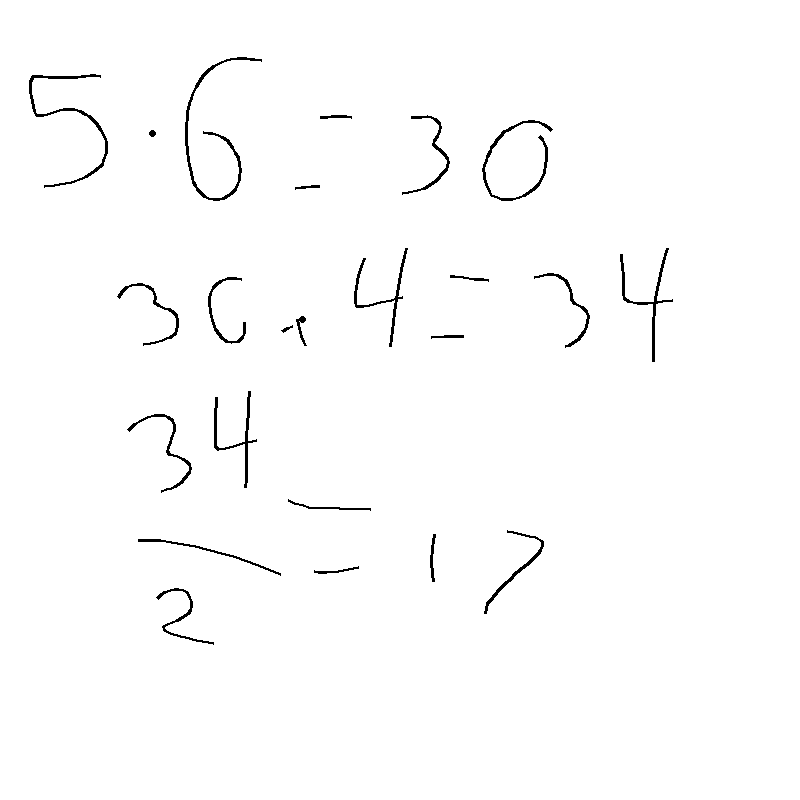 5 · 6 = 30
30 + 4 = 34
34
/ 2 = 17